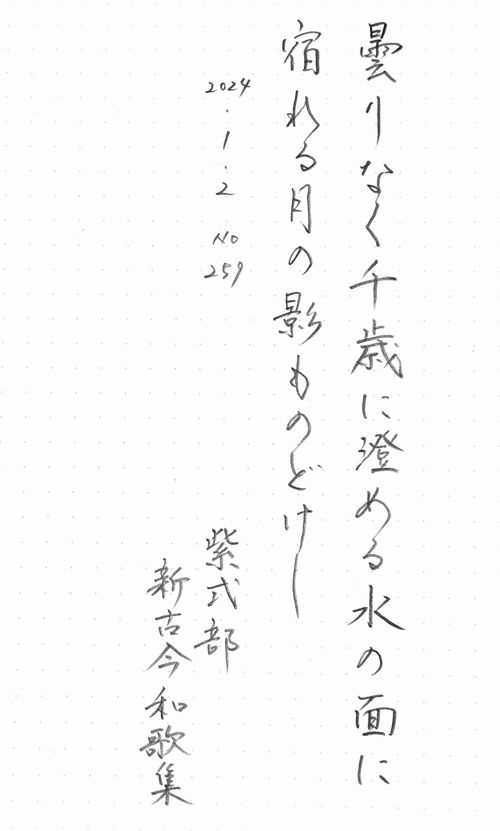 曇りなく千歳に澄める水の面に
宿れる月の影ものどけし
2024.1.2 No 259
紫式部
新古今和歌集